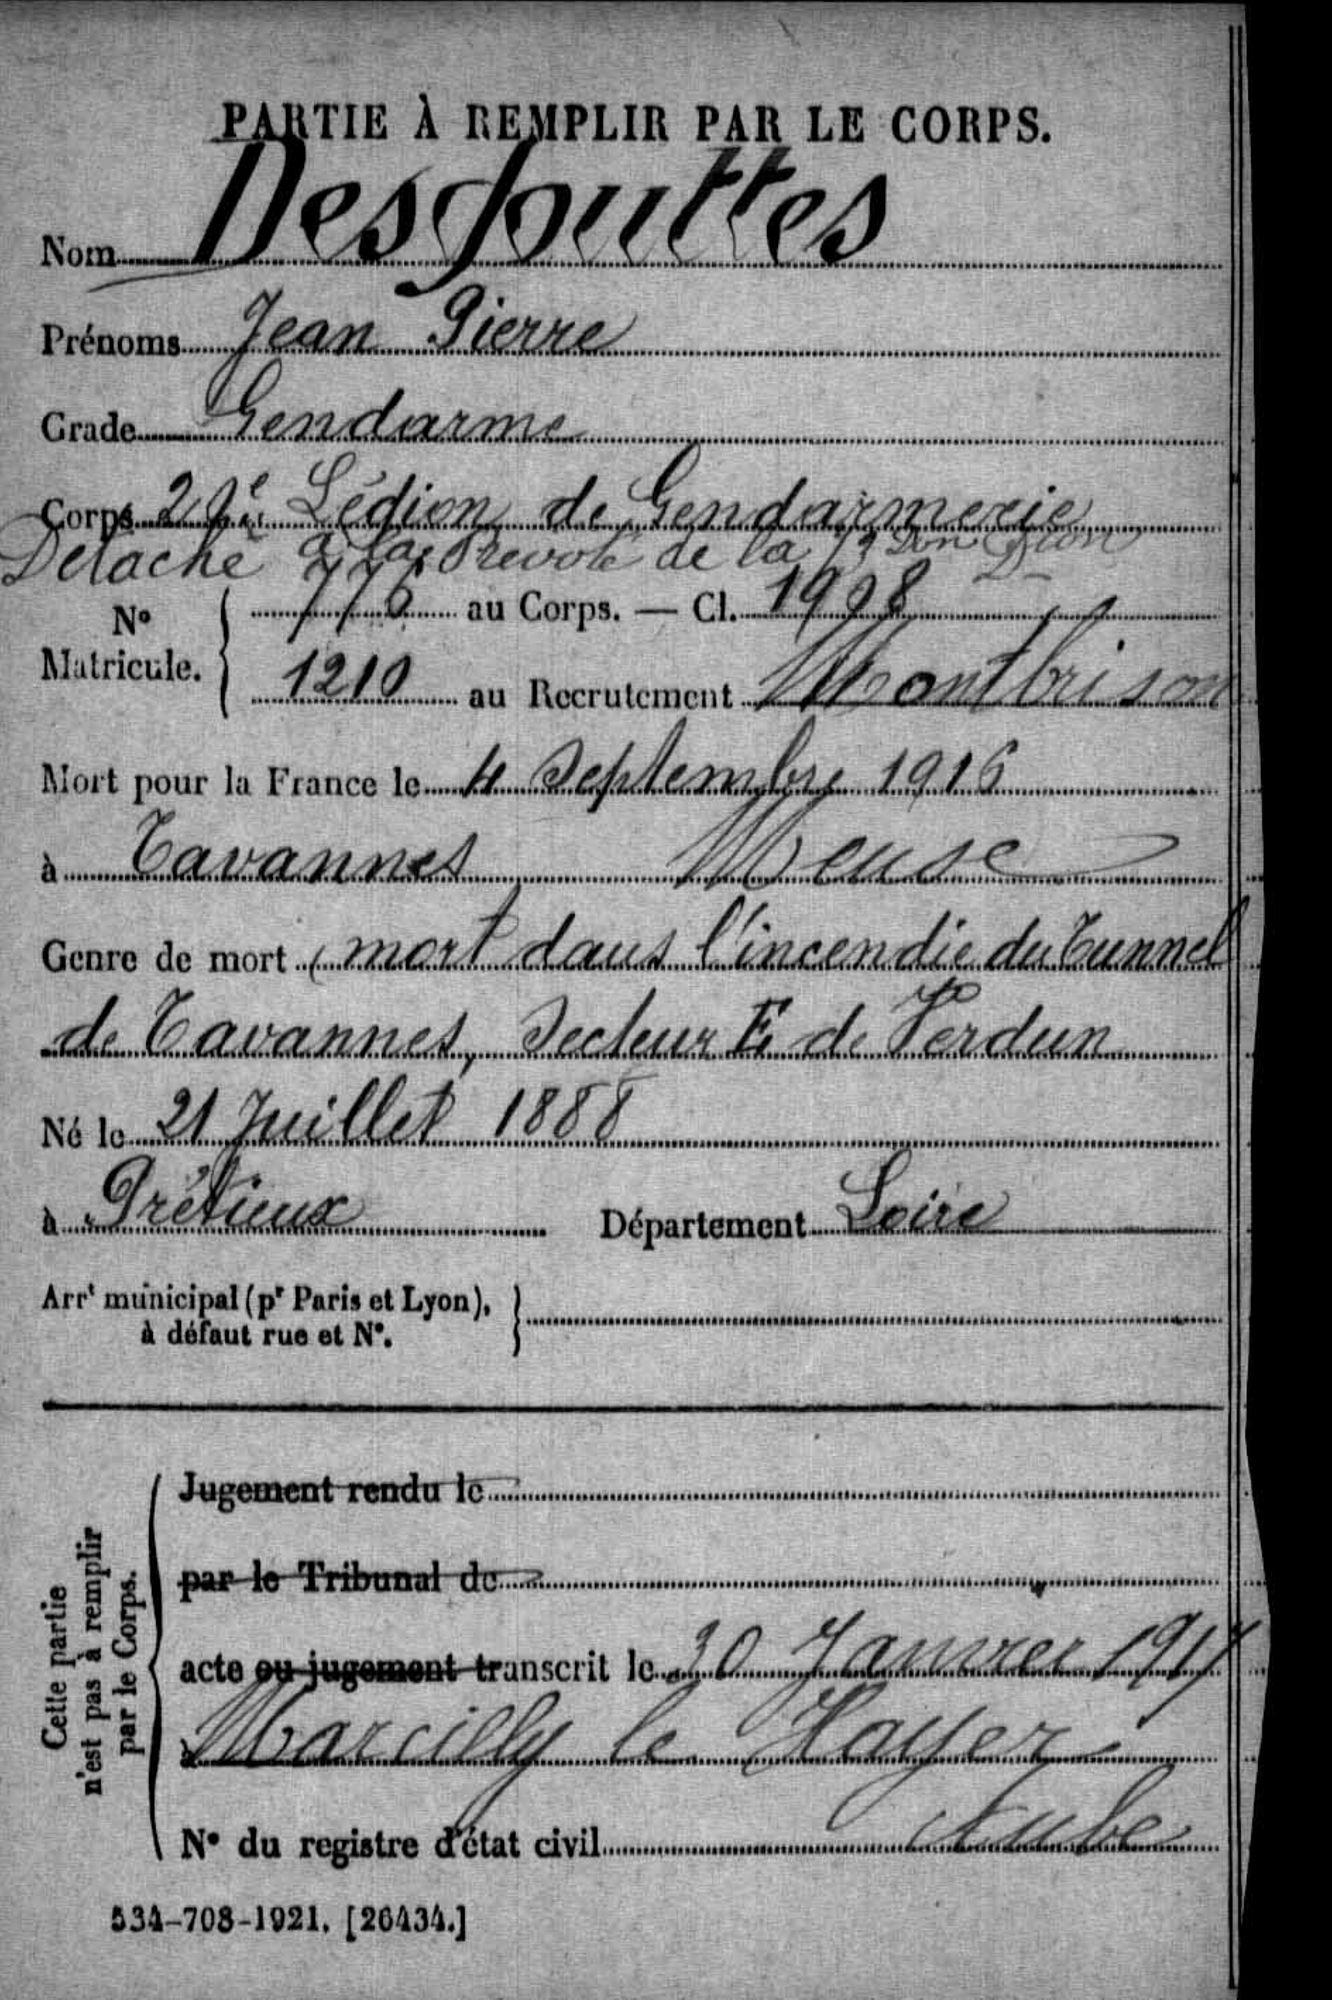 PARTIE À REMPLIR PAR LE CORPS.
Nom Desgouttes
Prénoms Jean Pierre
Grade Gendarme
Corps Légion de Gendarmerie
Détaché à la Prévoté de la 73 Don
N° Matricule. 776 au Corps. — Cl. 1908
1210 au Recrutement Montbrison
Mort pour la France le 4 Septembre 1916
à Tavannes Meuse
Genre de mort (mort dans l'incendie du Tunnel
de Tavannes, Secteur E de Verdun
Né le 21 Juillet 1888
à Prétieux Département Loire
Arrt municipal (pr Paris et Lyon),
à défaut rue et N°.
Cette partie
n'est pas à remplir
par le Corps.
Jugement rendu le
par le Tribunal de
acte ou jugement transcrit le 30 Janvier 1917
à Marcilly le Hayer
Aube
N° du registre d'état civil
534-708-1921. [26434.]